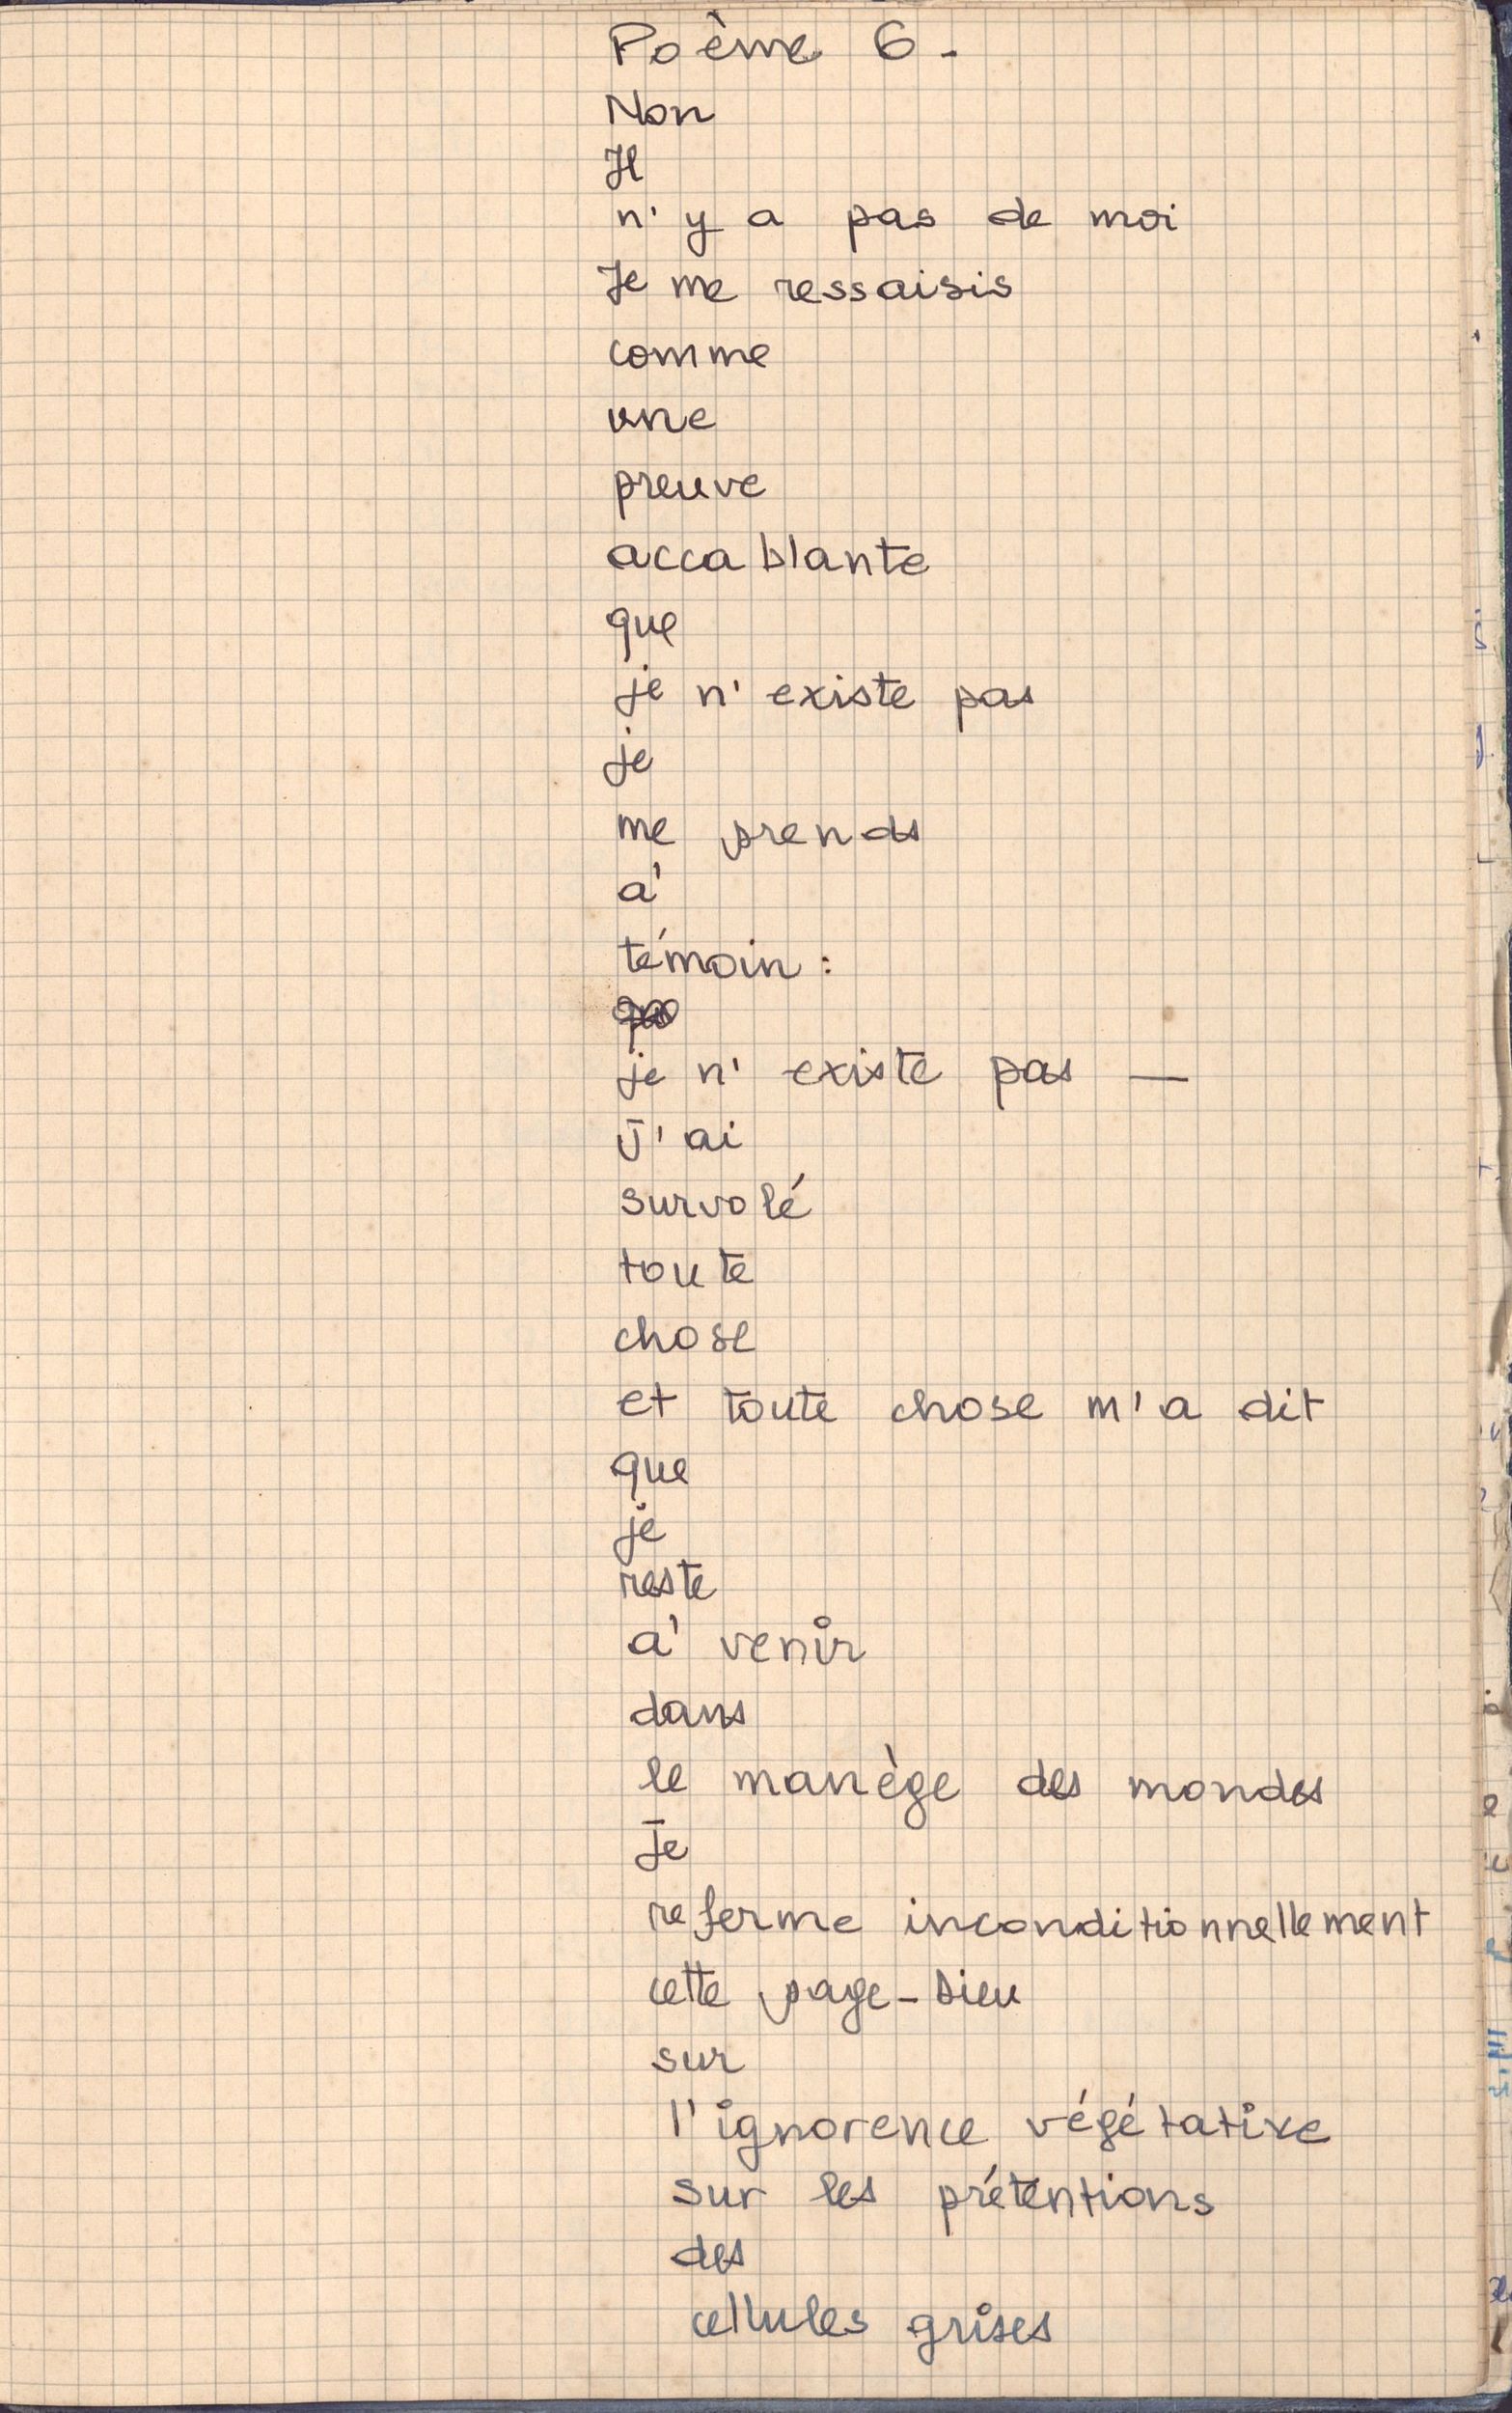 Poème 6-
Non
Il
n'y a pas de moi
Je me ressaisis
comme
une
preuve
accablante
que
je n'existe pas
je
me prends
à
témoin :
je n'existe pas —
J'ai
survolé
toute
chose
et toute chose m'a dit
que
je
reste
à venir
dans
le manège des mondes
Je
referme inconditionnellement
cette page-Dieu
sur
l'ignorence végétative
sur les prétentions
des
cellules grises